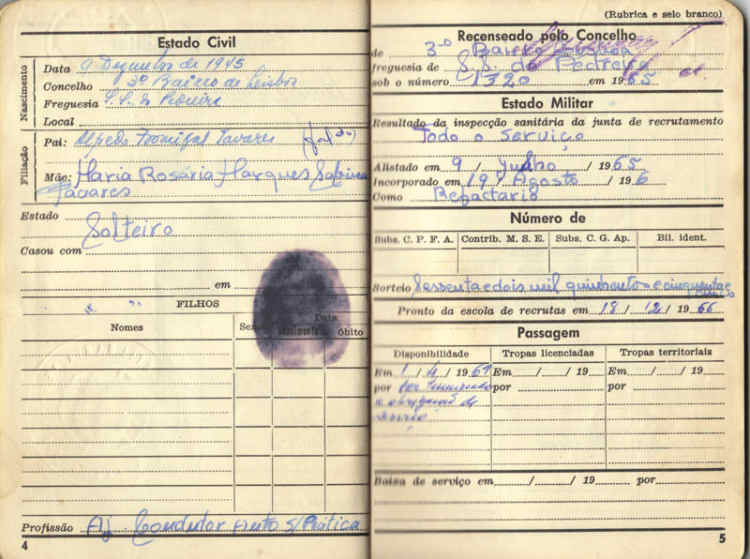 Estado Civil
Nascimento
Data 9 Dezembro de 1945
Concelho 3º Bairro de Lisboa
Freguesia S. S. da Pedreira
Local
Filiação
Pai: Alfredo Tavares
Mãe: Maria Rosária Marques
Tavares
Estado
Solteiro
Casou com
em
FILHOS
Nomes
Sexo
Data
Nascimento
óbito
Profissão Aj. Condutor Auto S/ Prática
4
(Rubrica e selo branco)
Recenseado pelo Concelho
de 3º Bairro Lisboa
freguesia de S.S. da Pedreira
sob o número 1320 em 1965
Estado Militar
Resultado da inspecção sanitária da junta de recrutamento
Todo o serviço
Alistado em 9 / Junho / 1965
Incorporado em 19 / Agosto / 196
Como Refactario
Número de
Subs. C. P. F. A.
Contrib. M. S. E.
Subs. C. G. Ap.
Bil. ident.
Sorteio Sessenta e dois mil quinhento e cinquenta e
Pronto da escola de recrutas em 18 / 12 / 1966
Passagem
Disponibilidade
Tropas licenciadas
Tropas territoriais
Em 1 / 4 / 1969
Em / / 19
Em / / 19
por por terminado
por
por
a obrigação de
serviço
Baixa de serviço em / / 19 por
5